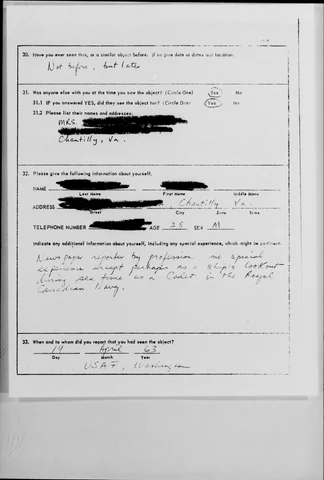 30. Have you ever seen this, or a similar object before. If so give date or dates and location.
Not before, but later
31. Was anyone else with you at the time you saw the object? (Circle One) Yes No
31.1 IF you answered YES, did they see the object too? (Circle One) Yes No
31.2 Please list their names and addresses:
MRS.
Chantilly, Va.
32. Please give the following information about yourself.
NAME
Last Name First Name Middle Name
ADDRESS Chantilly Va.
Street City Zone State
TELEPHONE NUMBER AGE 28 SEX M
Indicate any additional information about yourself, including any special experience, which might be pertinent.
Newspaper reporter by profession no special
experience except perhaps as a ship's lookout
during sea time as a Cadet in the Royal
Canadian Navy.
33. When and to whom did you report that you had seen the object?
19 April 63
Day Month Year
USAF, Washington